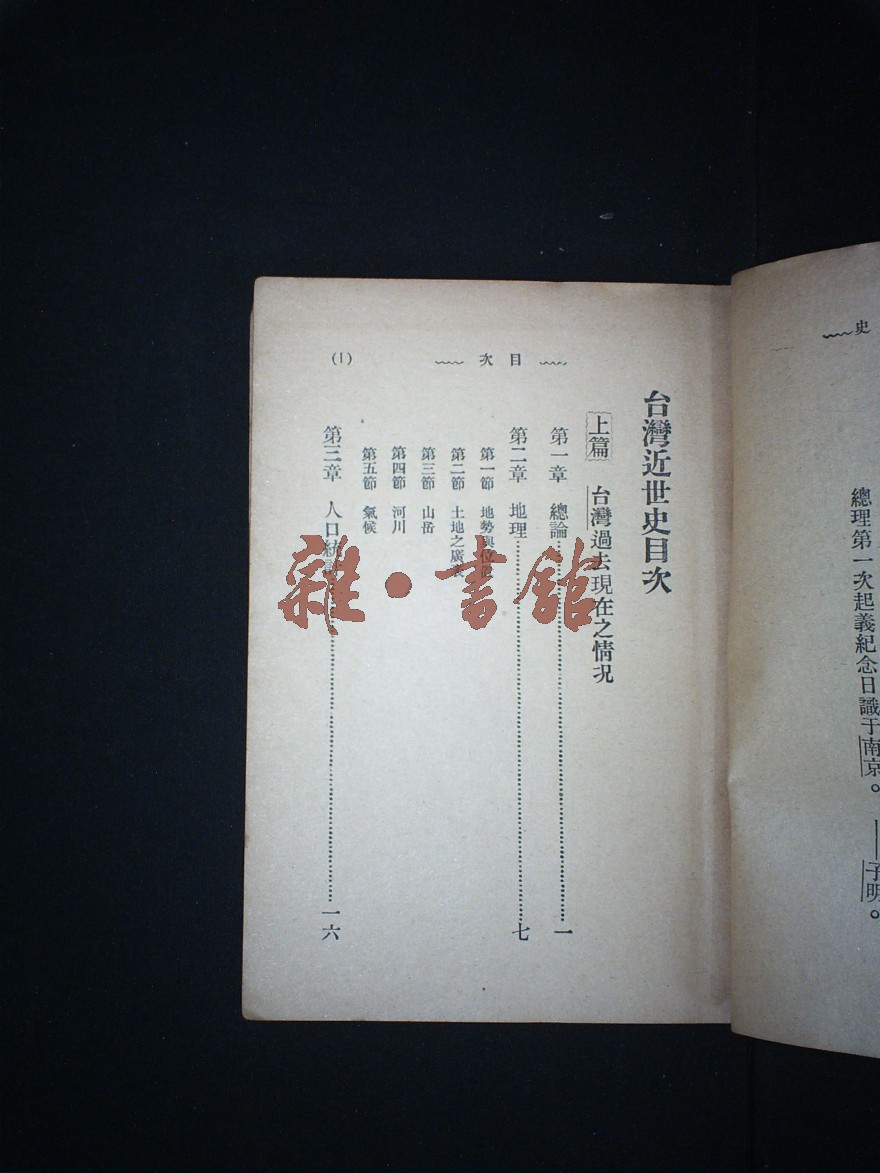 史
總理第一次起義紀念日識于南京。
子明。
目次
(1)
台灣近世史目次
上篇 台灣過去現在之情況
第一章 總論…………一
第二章 地理…………七
第一節 地勢與位置
第二節 土地之廣袤
第三節 山岳
第四節 河川
第五節 氣候
第三章 人口統計…………一六
雜·書館